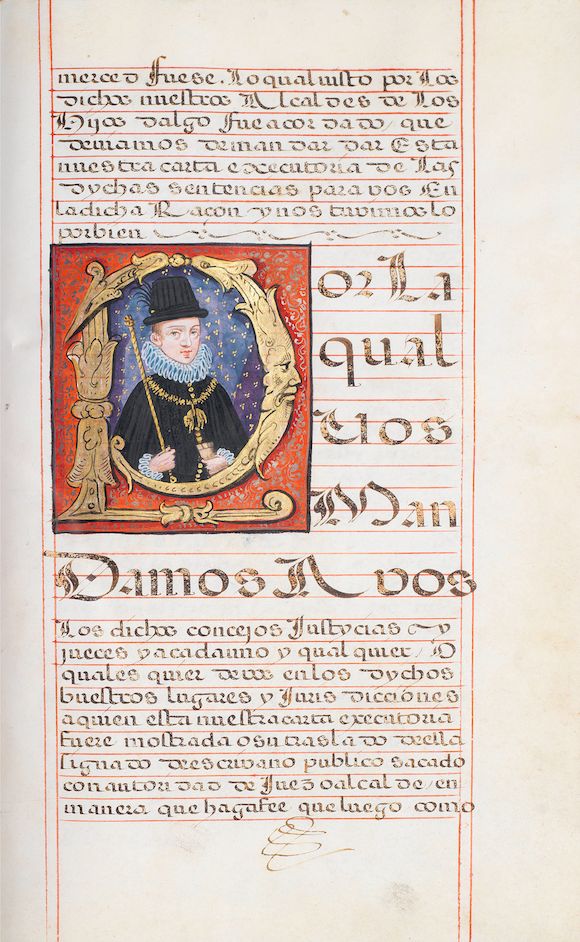 merced fuese. Lo qual uisto por Los
dichos nuestros Alcaldes de Los
Hijos dalgo fue acordado, que
deuiamos de mandar dar Esta
nuestra carta executoria de Las
dychas sentencias para vos En
la dicha Raçon y nos tuuimos lo
por bien
Por La
qual
Uos
Man
Damos A vos
Los dichos concejos Justycias y
jueces y a cada uno y qual quier, O
quales quier de vos en los dychos
buestros lugares y Juris dicciones
a quien esta nuestra carta executoria
fuere mostrada o su traslado de ella
signado de escriuano publico sacado
con autoridad de Juez o alcalde, en
manera que haga fee que luego como